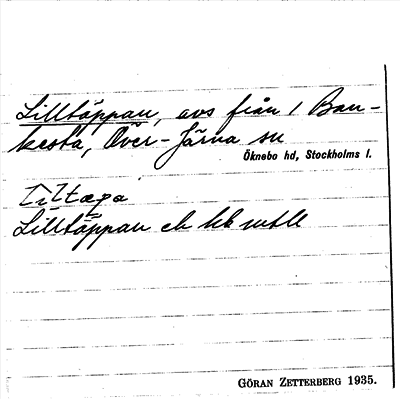 Lilltäppan, avs från 1 Ban-
kesta, Över-Järna sn
Öknebo hd, Stockholms l.
Lilltäppan ek hk mtll
GÖRAN ZETTERBERG 1935.